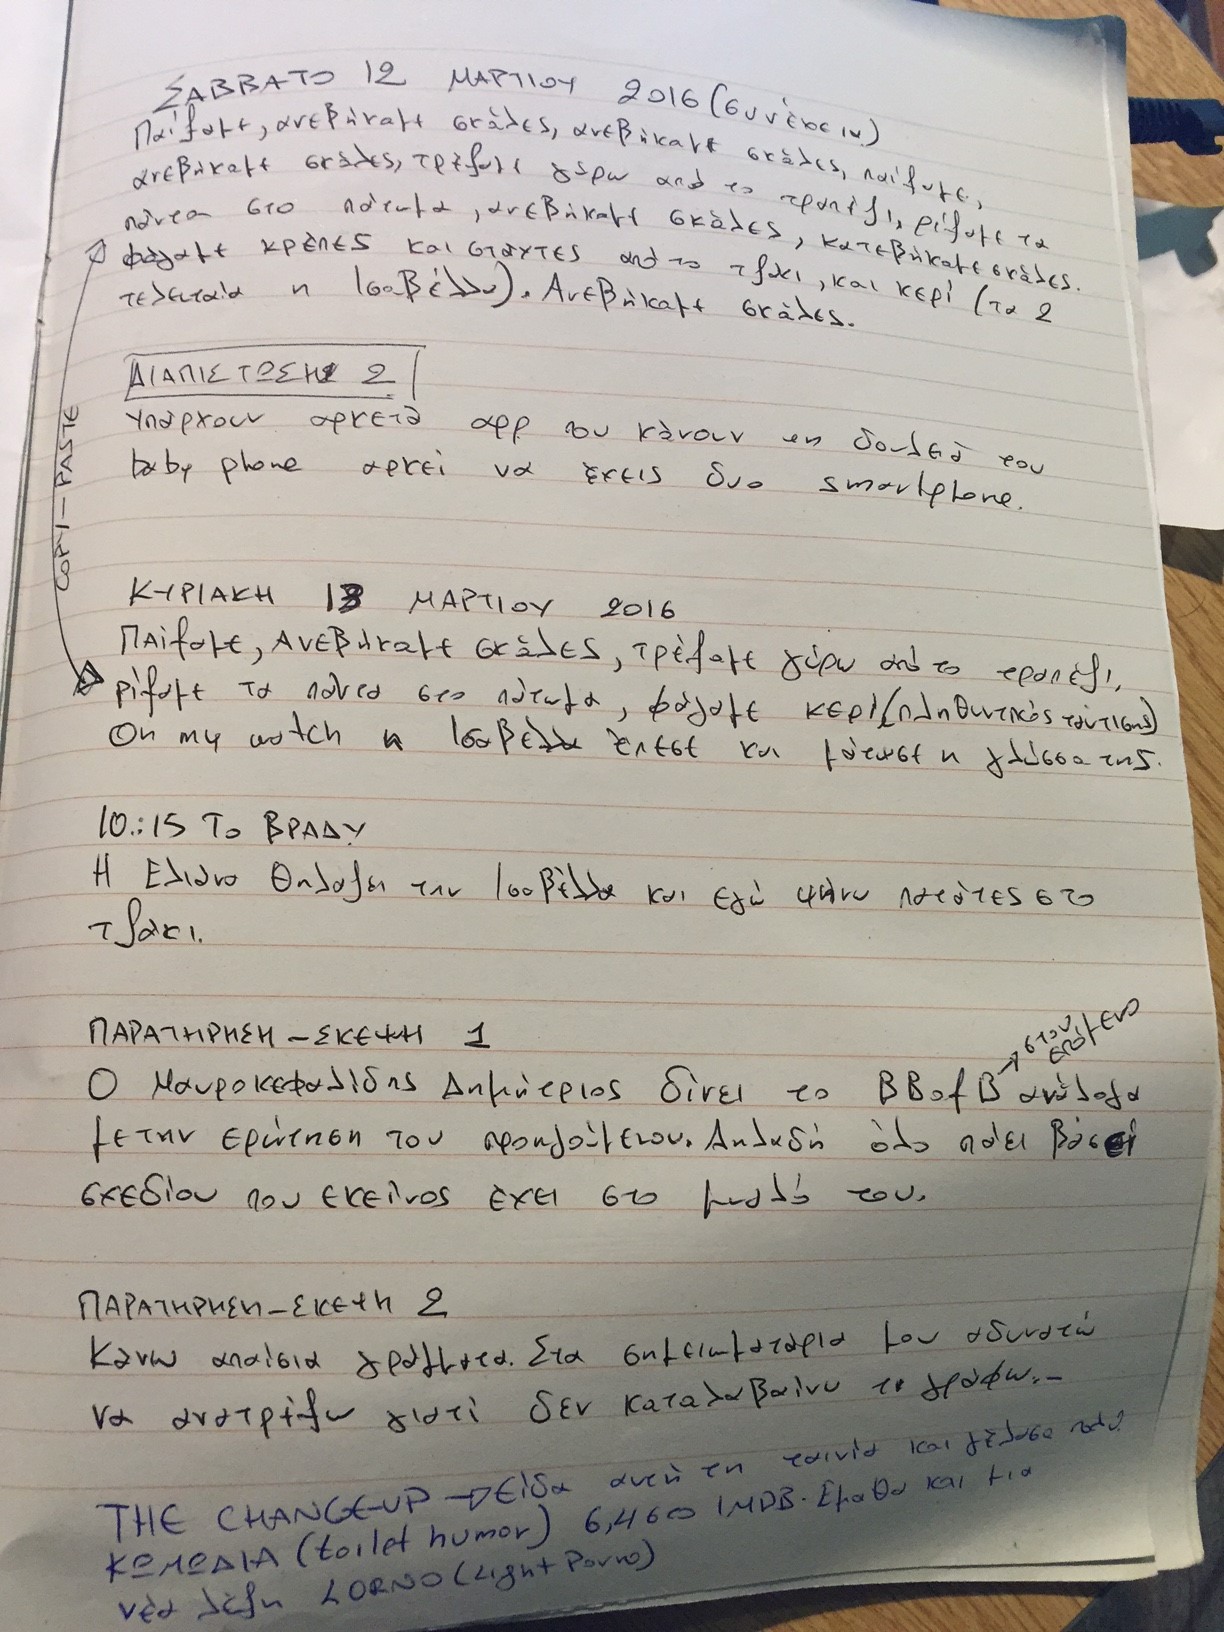 ΣΑΒΒΑΤΟ 12 ΜΑΡΤΙΟΥ 2016 (συνέχεια)
Παίξαμε, ανεβήκαμε σκάλες, ανεβήκαμε σκάλες, παίξαμε,
ανεβήκαμε σκάλες, τρέξαμε γύρω από το τραπέζι, ρίξαμε τα
πάντα στο πάτωμα, ανεβήκαμε σκάλες, κατεβήκαμε σκάλες.
φάγαμε κρέπες και στάχτες από το τζάκι, και κερί (τα 2
τελευταία η Ισαβέλλα). Ανεβήκαμε σκάλες.
ΔΙΑΠΙΣΤΩΣΗ 2
Υπάρχουν αρκετά app που κάνουν τη δουλειά του
baby phone αρκεί να έχεις δυο smartphone.
COPY-PASTE
ΚΥΡΙΑΚΗ 13 ΜΑΡΤΙΟΥ 2016
Παίξαμε, Ανεβήκαμε σκάλες, τρέξαμε γύρω από το τραπέζι,
ρίξαμε τα πάντα στο πάτωμα, φάγαμε κερί (πληθυντικός ταύτισης)
On my watch η Ισαβέλλα έπεσε και μάτωσε η γλώσσα της.
10:15 Το ΒΡΑΔΥ
Η Ελιάνα θηλάζει την Ισαβέλλα και εγώ ψήνω πατάτες στο
τζάκι.
ΠΑΡΑΤΗΡΗΣΗ – ΣΚΕΨΗ 1
Ο Μαυροκεφαλίδης Δημήτριος δίνει το BBofB → στον επόμενο ανάλογα
με την ερώτηση του προηγούμενου. Δηλαδή όλο πάει βάσει
σχεδίου που εκείνος έχει στο μυαλό του.
ΠΑΡΑΤΗΡΗΣΗ – ΣΚΕΨΗ 2
Κάνω απαίσια γράμματα. Στα σημειωματάρια μου αδυνατώ
να ανατρέξω γιατί δεν καταλαβαίνω τι γράφω.–
THE CHANGE-UP → Είδα αυτή τη ταινία και γέλασα πολύ
ΚΩΜΩΔΙΑ (toilet humor) 6,4 IMDB. Έμαθα και μια
νέα λέξη LORNO (Light Porno)